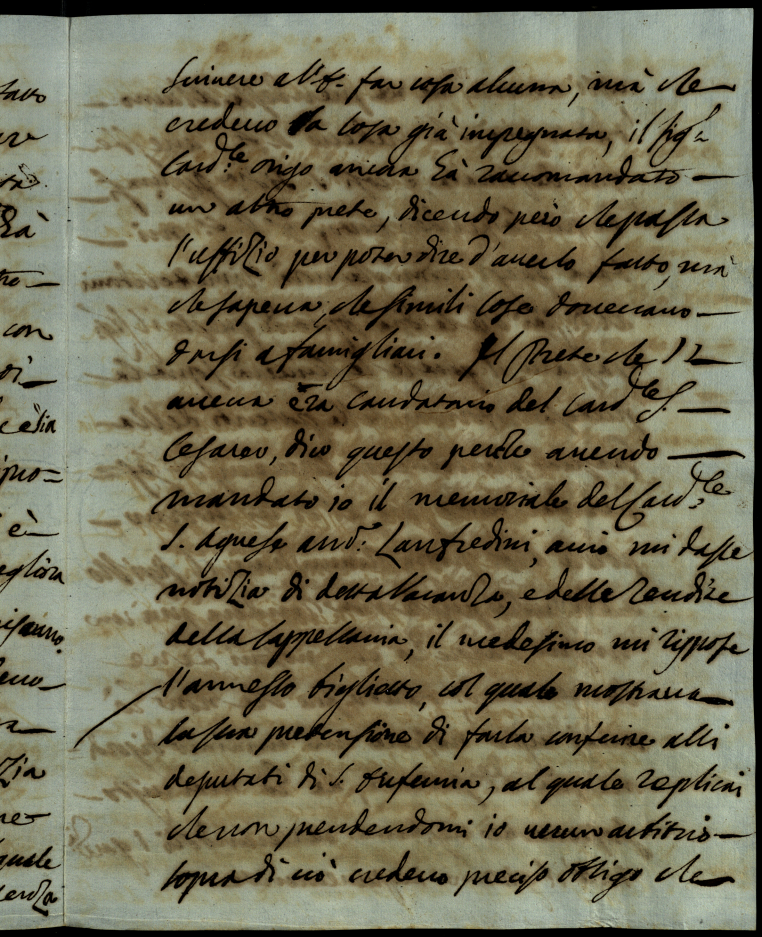 scrivere all'E. far cosa alcuna, mà che
credevo la cosa già impegnata, il Sig.r
Card.le origo ancora hà raccomandato
un altro prete, dicendo però che passa
l'uffizio per poter dire d'averlo fatto, mà
che sapeva, che simili cose dovevano
darsi a famigliari. Il Prete che l'
aveva èra caudatario del Card.le S.
Cesareo, dico questo perche avendo
mandato io il memoriale del Card.le
S. Agnese Lanfredini, acciò mi dasse
notizia di detta Vacanza, e delle rendite
della Cappellania, il medesimo mi rispose
l'annesso biglietto, col quale mostrava
la sua pretensione di farla conferire alli
deputati di S. Eufemia, al quale replicai
che non prendendomi io verun arbitrio
sopra di ciò credevo preciso obligo che
fatto
ure
hà
con
è
quale